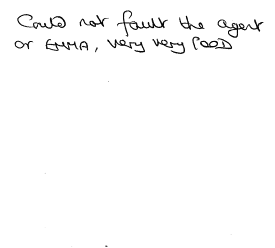 Could not fault the agent
or EMMA, very very GOOD